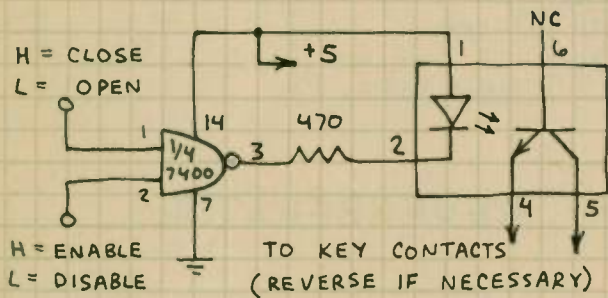 NC
H = CLOSE
L = OPEN
+5
1
6
1
14
470
1/4
7400
3
2
2
7
4
5
H = ENABLE
L = DISABLE
TO KEY CONTACTS
(REVERSE IF NECESSARY)